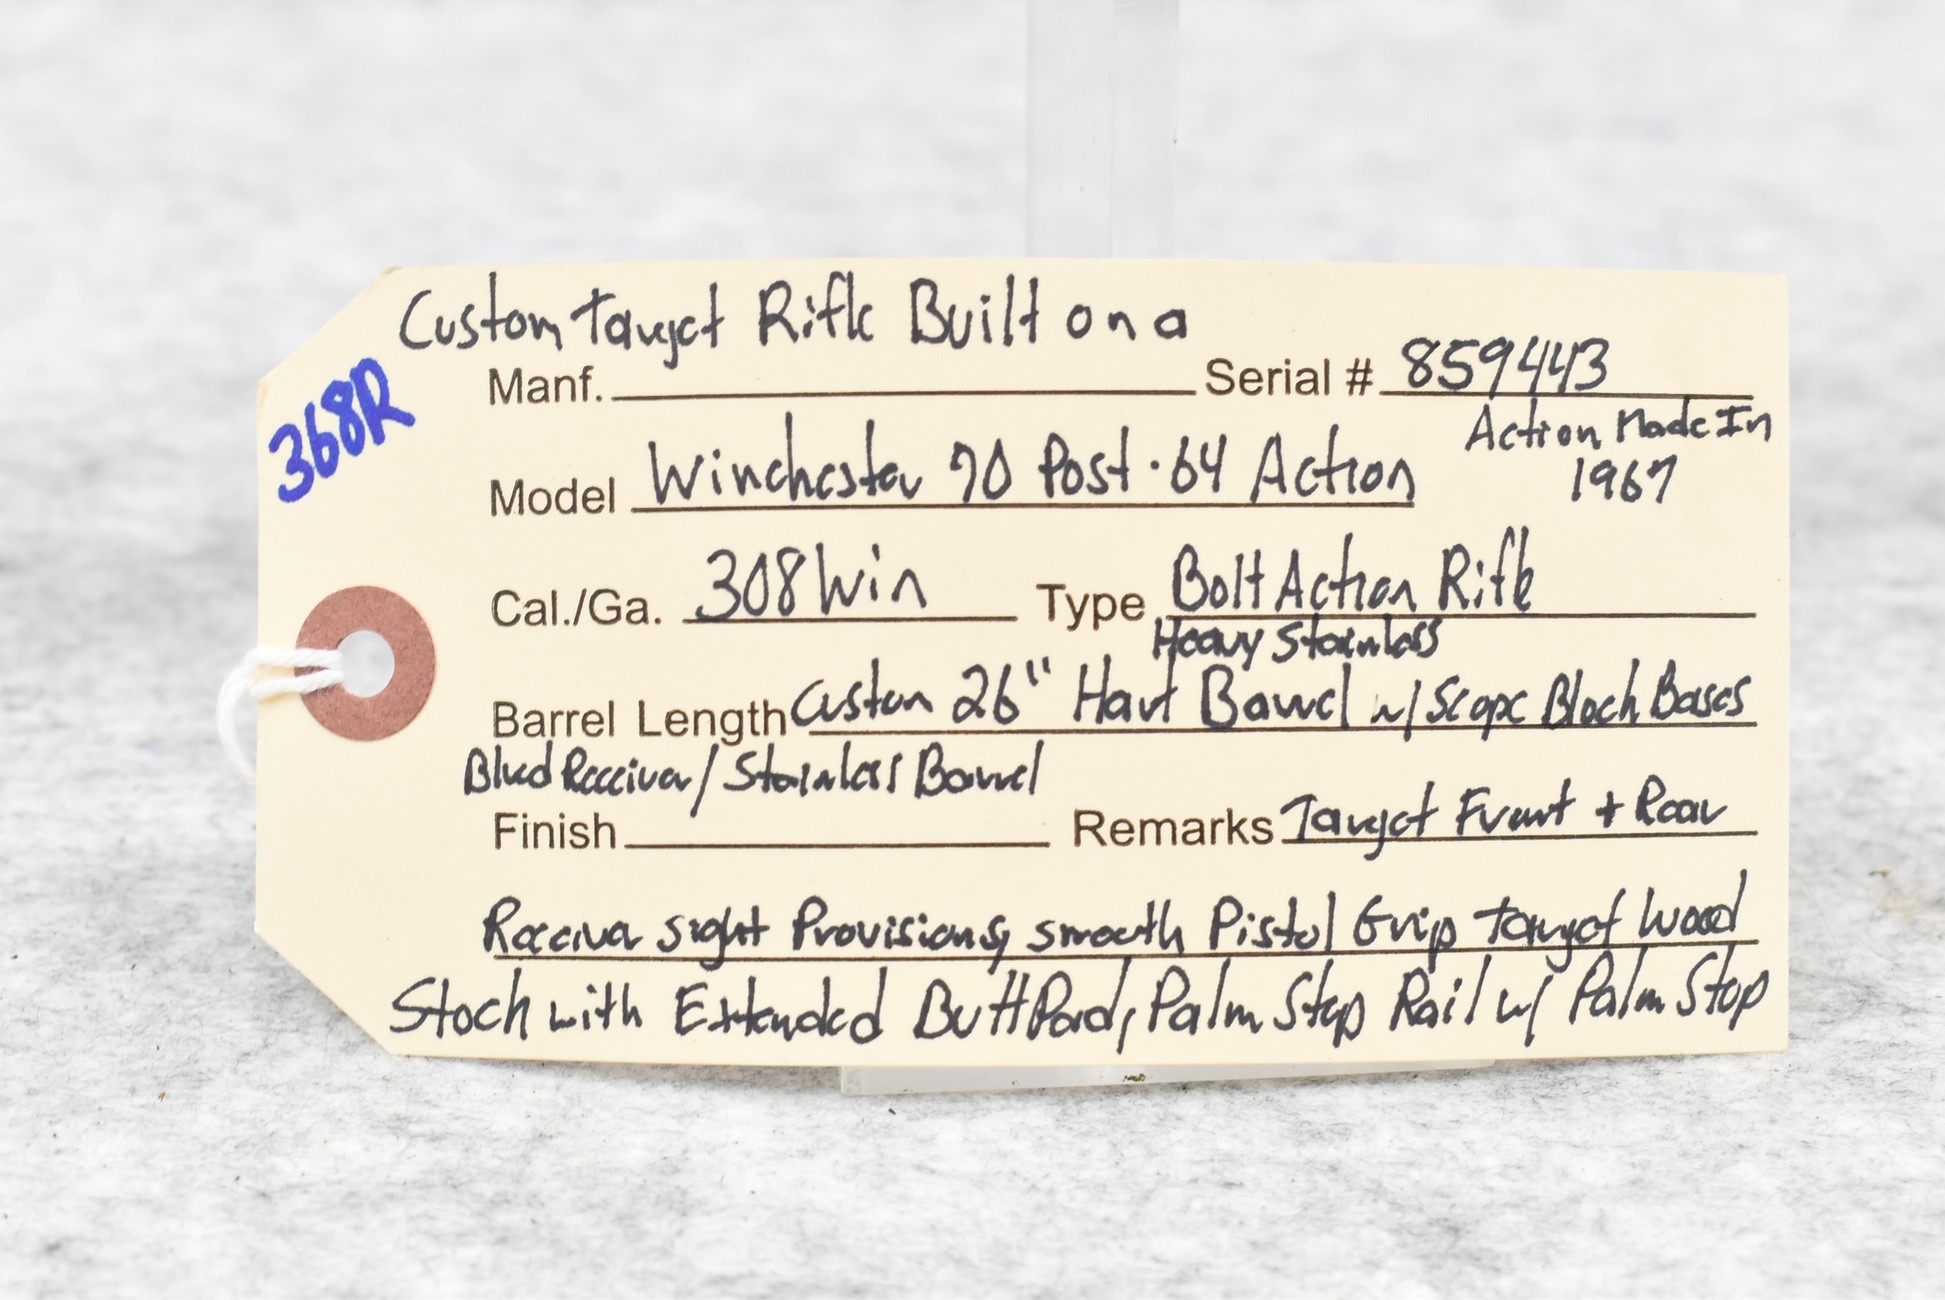 Custom Target Rifle Built on a
368R
Manf. Serial # 859443
Action Made In
1967
Model Winchester 70 Post·64 Action
Cal./Ga. 308 Win Type Bolt Action Rifle
Heavy Stainless
Barrel Length Custom 26" Hart Barrel w/ Scope Block Bases
Blued Receiver / Stainless Barrel
Finish Remarks Target Front + Rear
Receiver sight Provisions, smooth Pistol Grip Target Wood
Stock with Extended Butt Pad, Palm Stop Rail w/ Palm Stop